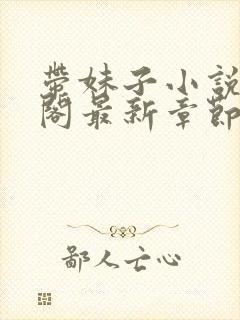 带妹子小說
閣最新章節
鄙人亡心